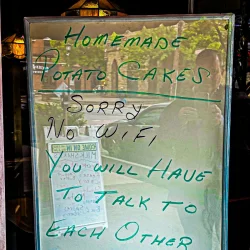 Homemade
Potato Cakes
Sorry
No WiFi,
You will Have
To Talk to
Each Other